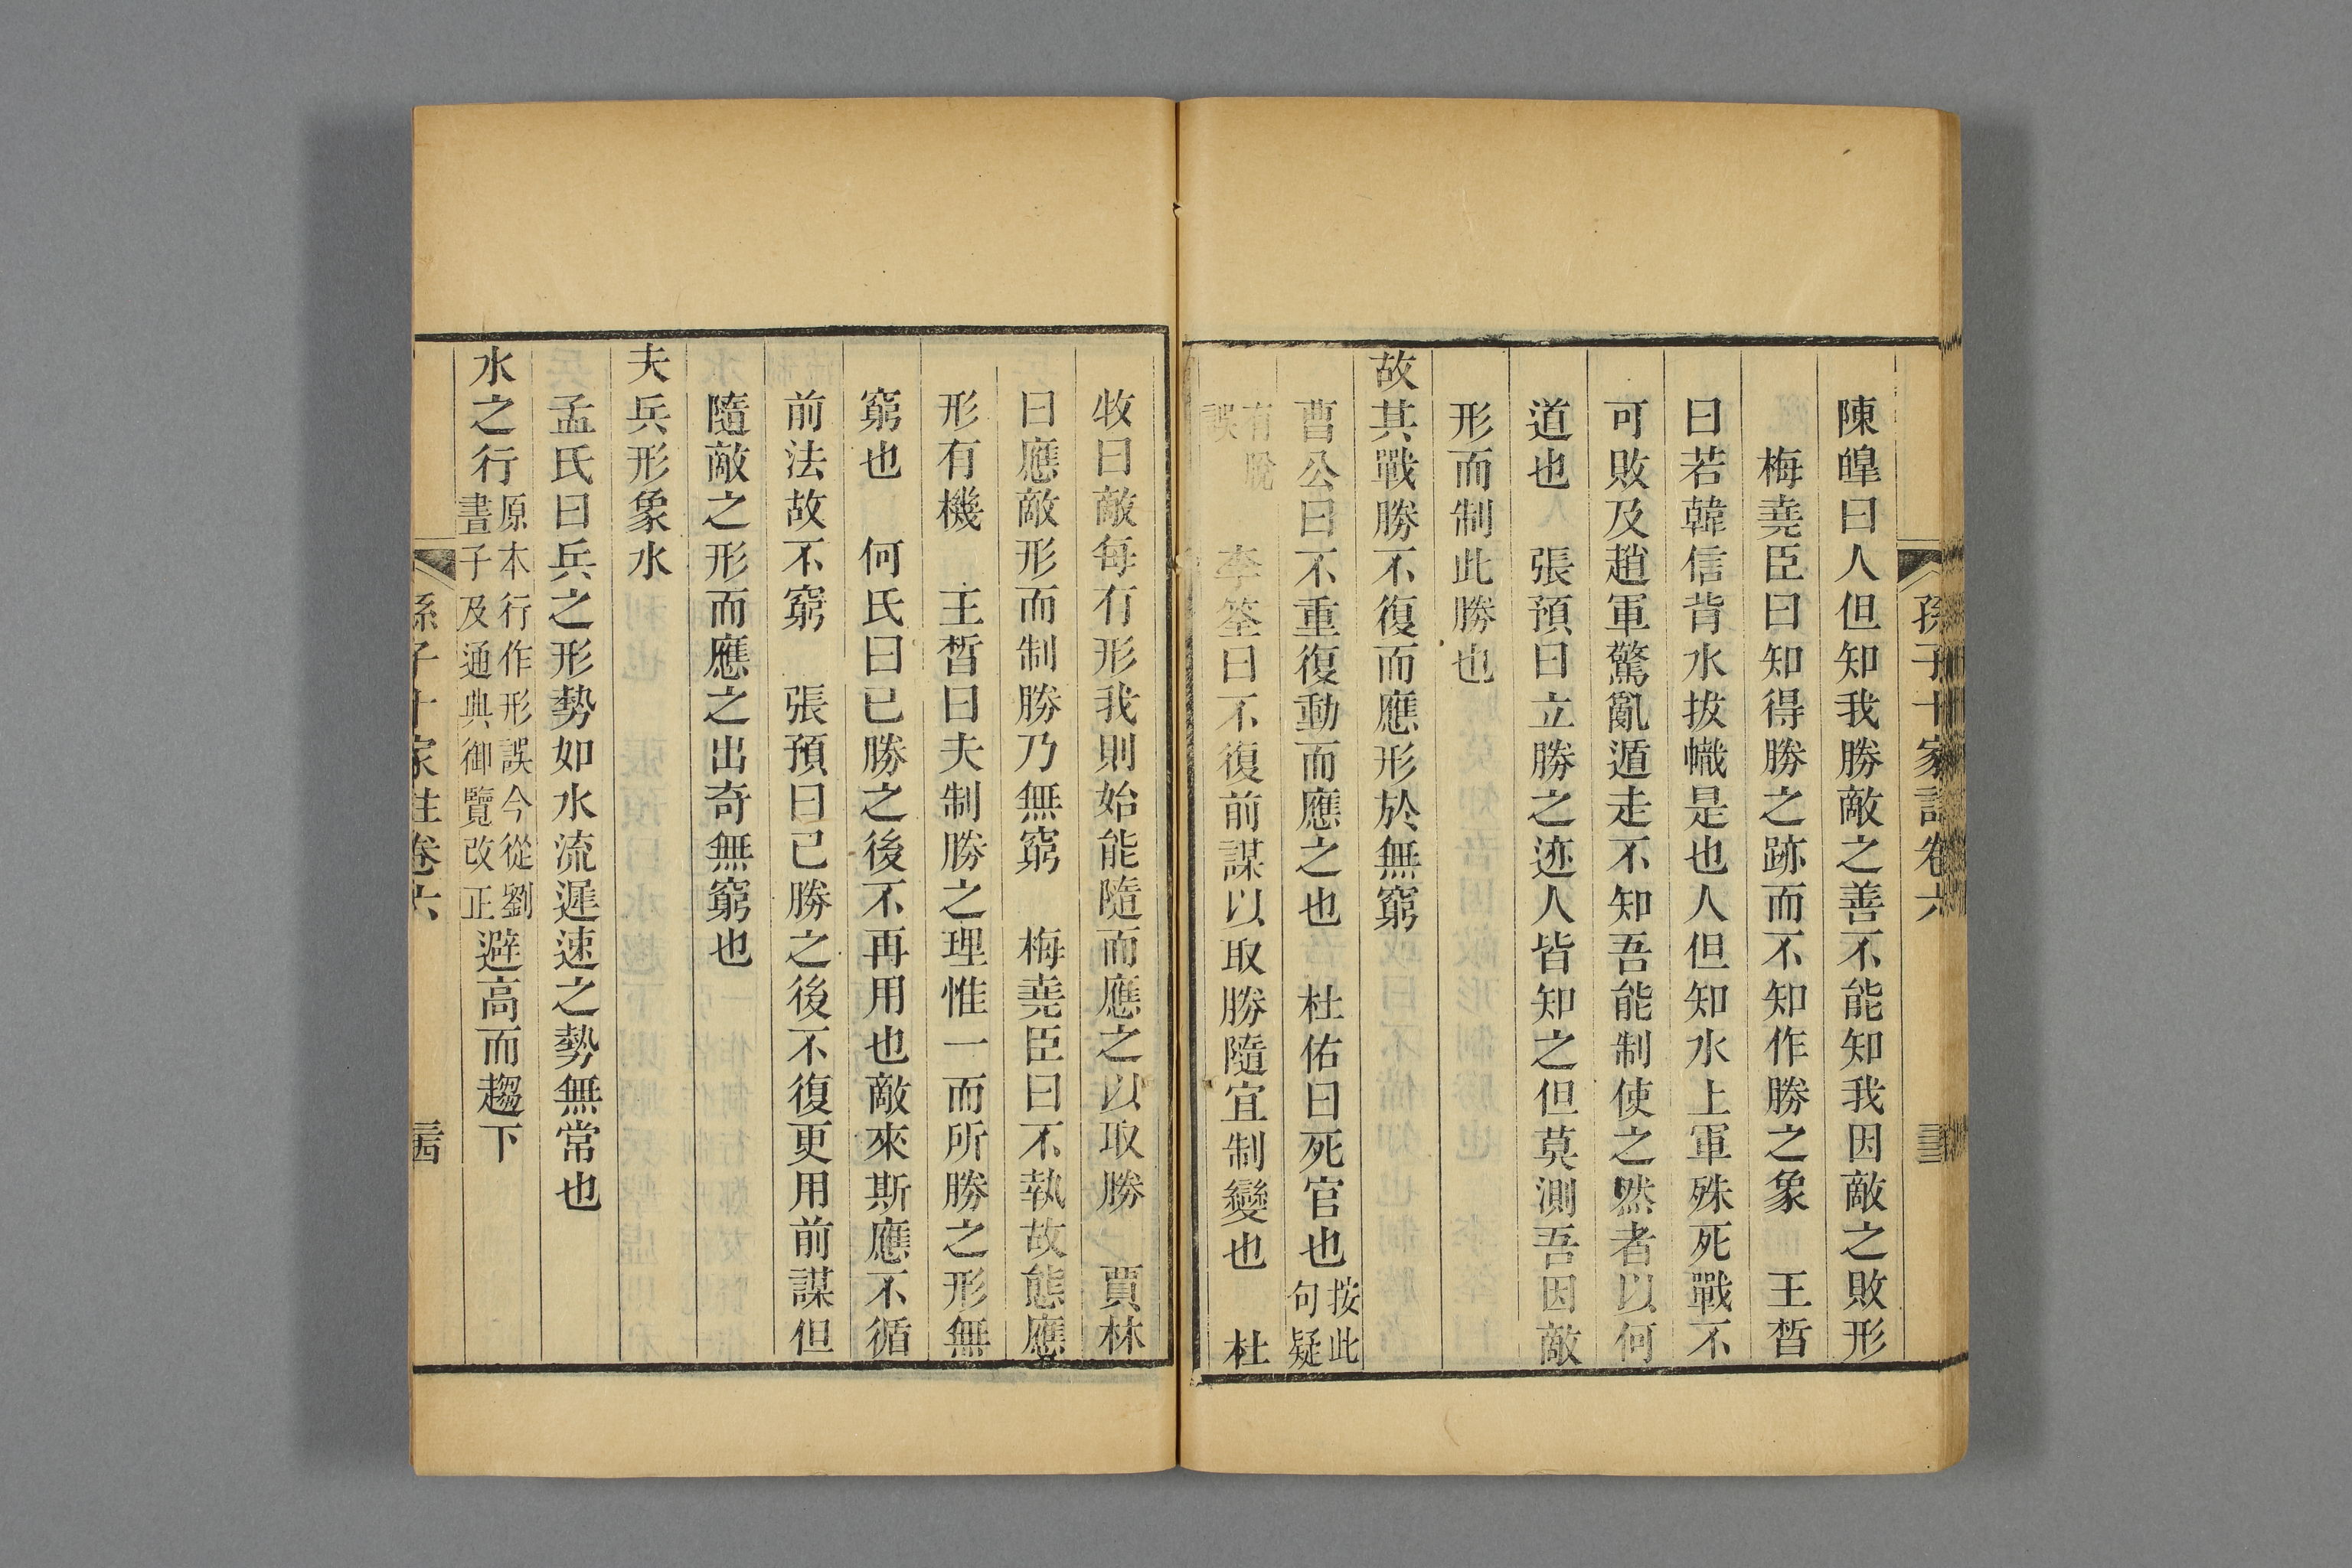 陳皥曰人但知我勝敵之善不能知我因敵之敗形
梅堯臣曰知得勝之跡而不知作勝之象　王晳
曰若韓信背水拔幟是也人但知水上軍殊死戰不
可敗及趙軍驚亂遁走不知吾能制使之然者以何
道也　張預曰立勝之迹人皆知之但莫測吾因敵
形而制此勝也
故其戰勝不復而應形於無窮
曹公曰不重復動而應之也　杜佑曰死官也按此句疑
有脫誤　李筌曰不復前謀以取勝隨宜制變也　杜
牧曰敵每有形我則始能隨而應之以取勝　賈林
曰應敵形而制勝乃無窮　梅堯臣曰不執故態應
形有機　王晳曰夫制勝之理惟一而所勝之形無
窮也　何氏曰已勝之後不再用也敵來斯應不循
前法故不窮　張預曰已勝之後不復更用前謀但
隨敵之形而應之出奇無窮也
夫兵形象水
孟氏曰兵之形勢如水流遲速之勢無常也
水之行原本行作形誤今從劉晝子及通典御覽改正避高而趨下
孫子十家注卷六